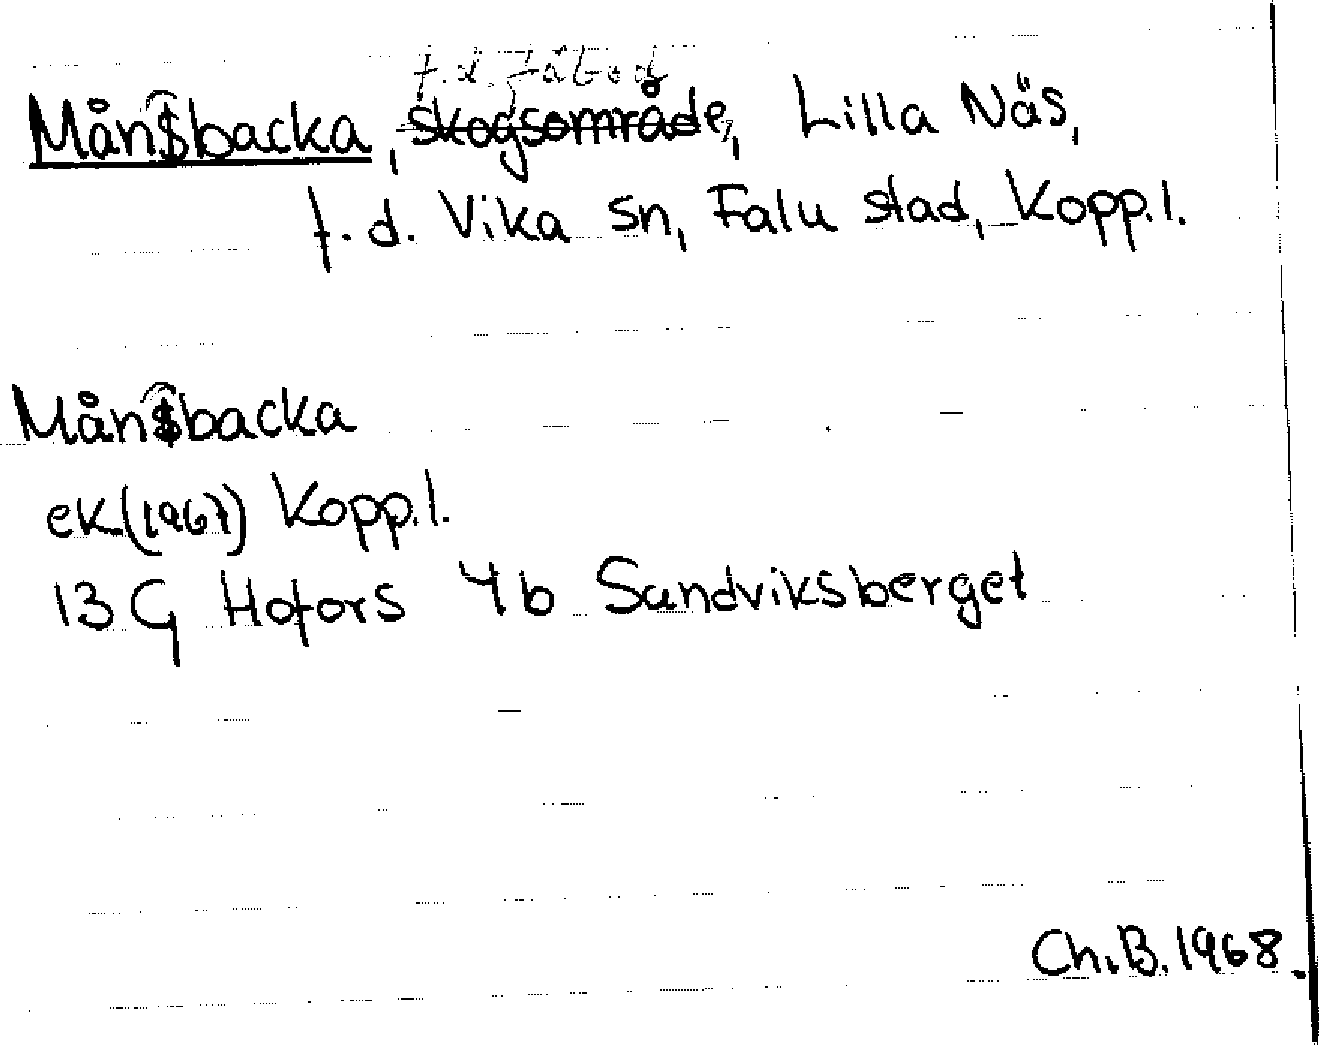 f.d. fäbod
Månsbacka, skogsområde, Lilla Näs,
f.d. Vika sn, Falu stad, Kopp.l.
Månsbacka
ek(1967) Kopp.l.
13 G Hofors 4b Sandviksberget
Ch.B.1968.